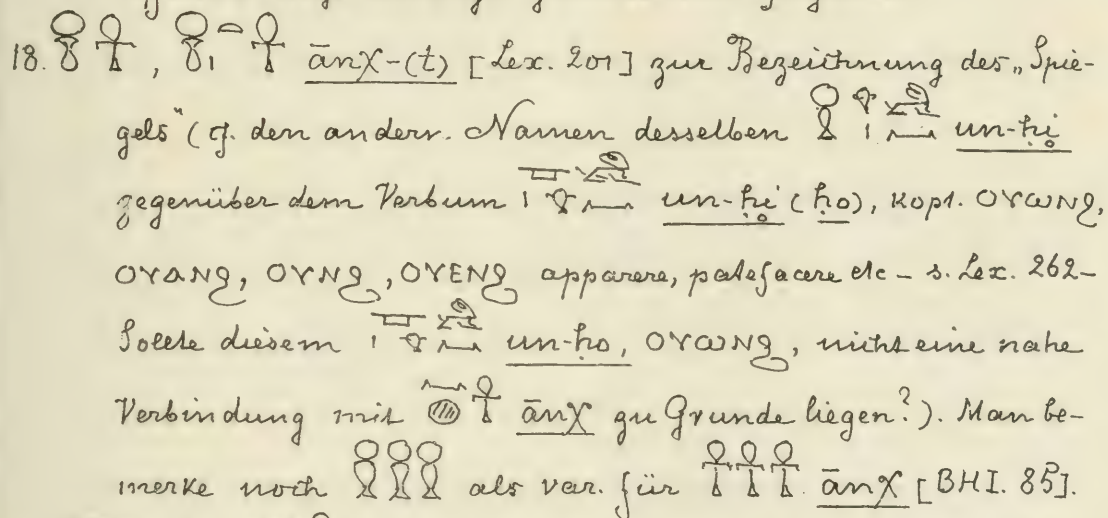 18. , ānχ-(t) [Lex. 201] zur Bezeichnung des „Spie-
gels“ (cf. den andern. Namen desselben un-ḥi
gegenüber dem Verbum un-ḥi (ḥo), kopt. ⲞⲨⲰⲚϨ,
ⲞⲨⲀⲚϨ, ⲞⲨⲚϨ, ⲞⲨⲈⲚϨ apparere, patefacere etc – s. Lex. 262–
Sollte diesem un-ḥo, ⲞⲨⲰⲚϨ, nicht eine nahe
Verbindung mit ānχ zu Grunde liegen?). Man be-
merke noch als var. für ānχ [BHI. 85].